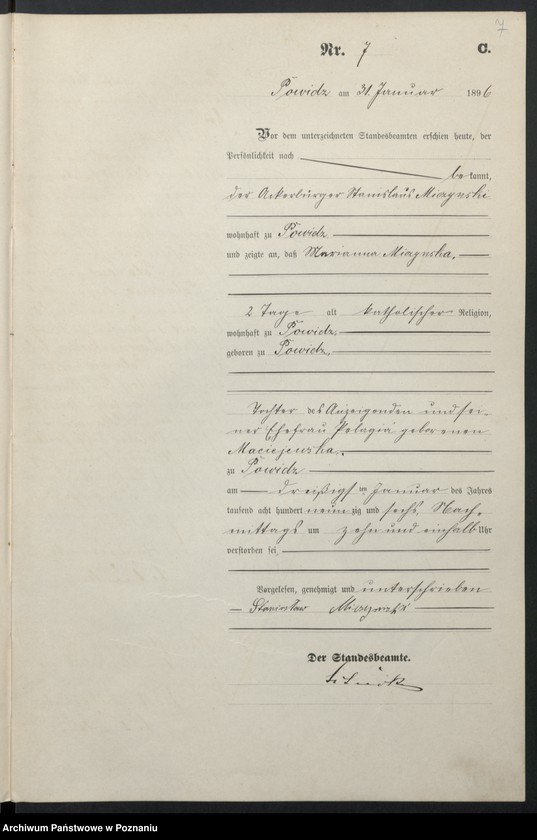 7
Nr. 7 C.
Powidz am 31. Januar 1896
Vor dem unterzeichneten Standesbeamten erschien heute, der
Persönlichkeit nach
bekannt,
der Ackerbürger Stanislaus Miczynski
wohnhaft zu Powidz
und zeigte an, daß Marianna Miczynska,
2 Tage alt katholischer Religion,
wohnhaft zu Powidz,
geboren zu Powidz,
Tochter des Anzeigenden und sei-
ner Ehefrau Pelagia geborenen
Maciejewska,
zu Powidz
am dreißigsten Januar des Jahres
tausend acht hundert neunzig und sechs, Nach-
mittags um zehn und einhalb Uhr
verstorben sei,
Vorgelesen, genehmigt und unterschrieben
Stanisław Miczynski
Der Standesbeamte.
Archiwum Państwowe w Poznaniu